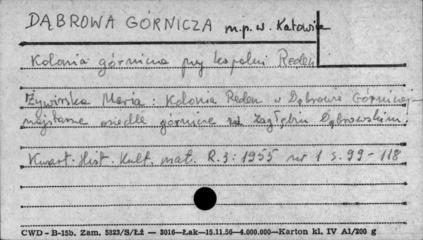 DĄBROWA GÓRNICZA m.p.w. Katowice
Kolonia górnicza przy kopalni Reden
Żywirska Maria: Kolonia Reden w Dąbrowie Górniczej -
najstarsze osiedle górnicze w Zagłębiu Dąbrowskim.
Kwart. Hist. Kult. mat. R. 3: 1955 nr 1 s. 99-118
CWD - B-15b. Zam. 5323/S/Łż — 3016—Łak—15.11.56—4.000.000—Karton kl. IV A1/200 g